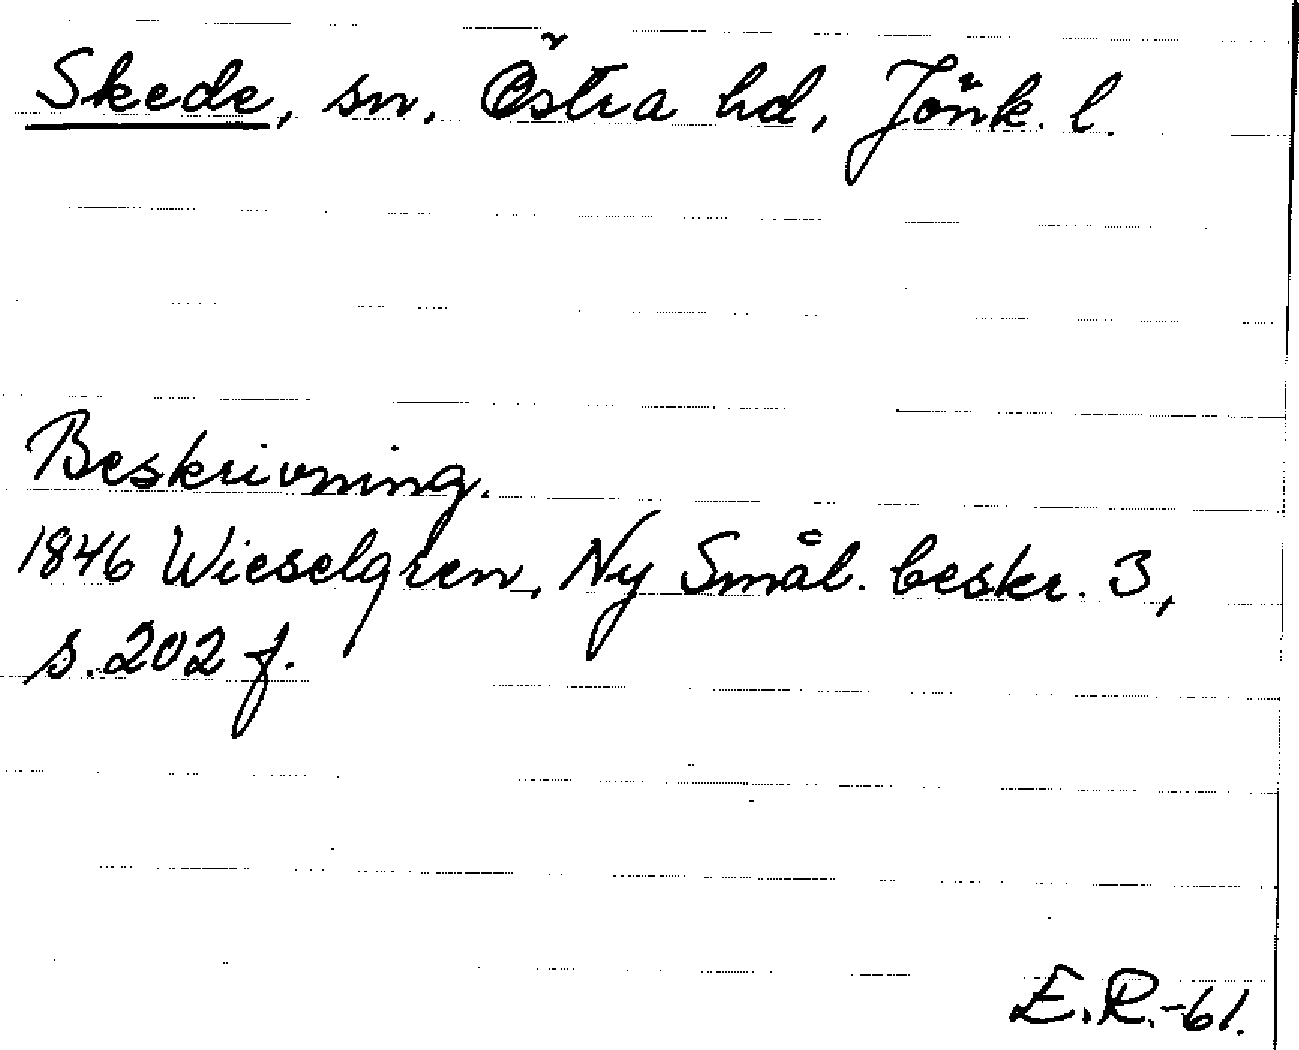 Skede, sn, Östra hd, Jönk. l.
Beskrivning.
1846 Wieselgren, Ny Smål. beskr. 3,
s. 202 f.
E.R.-61.